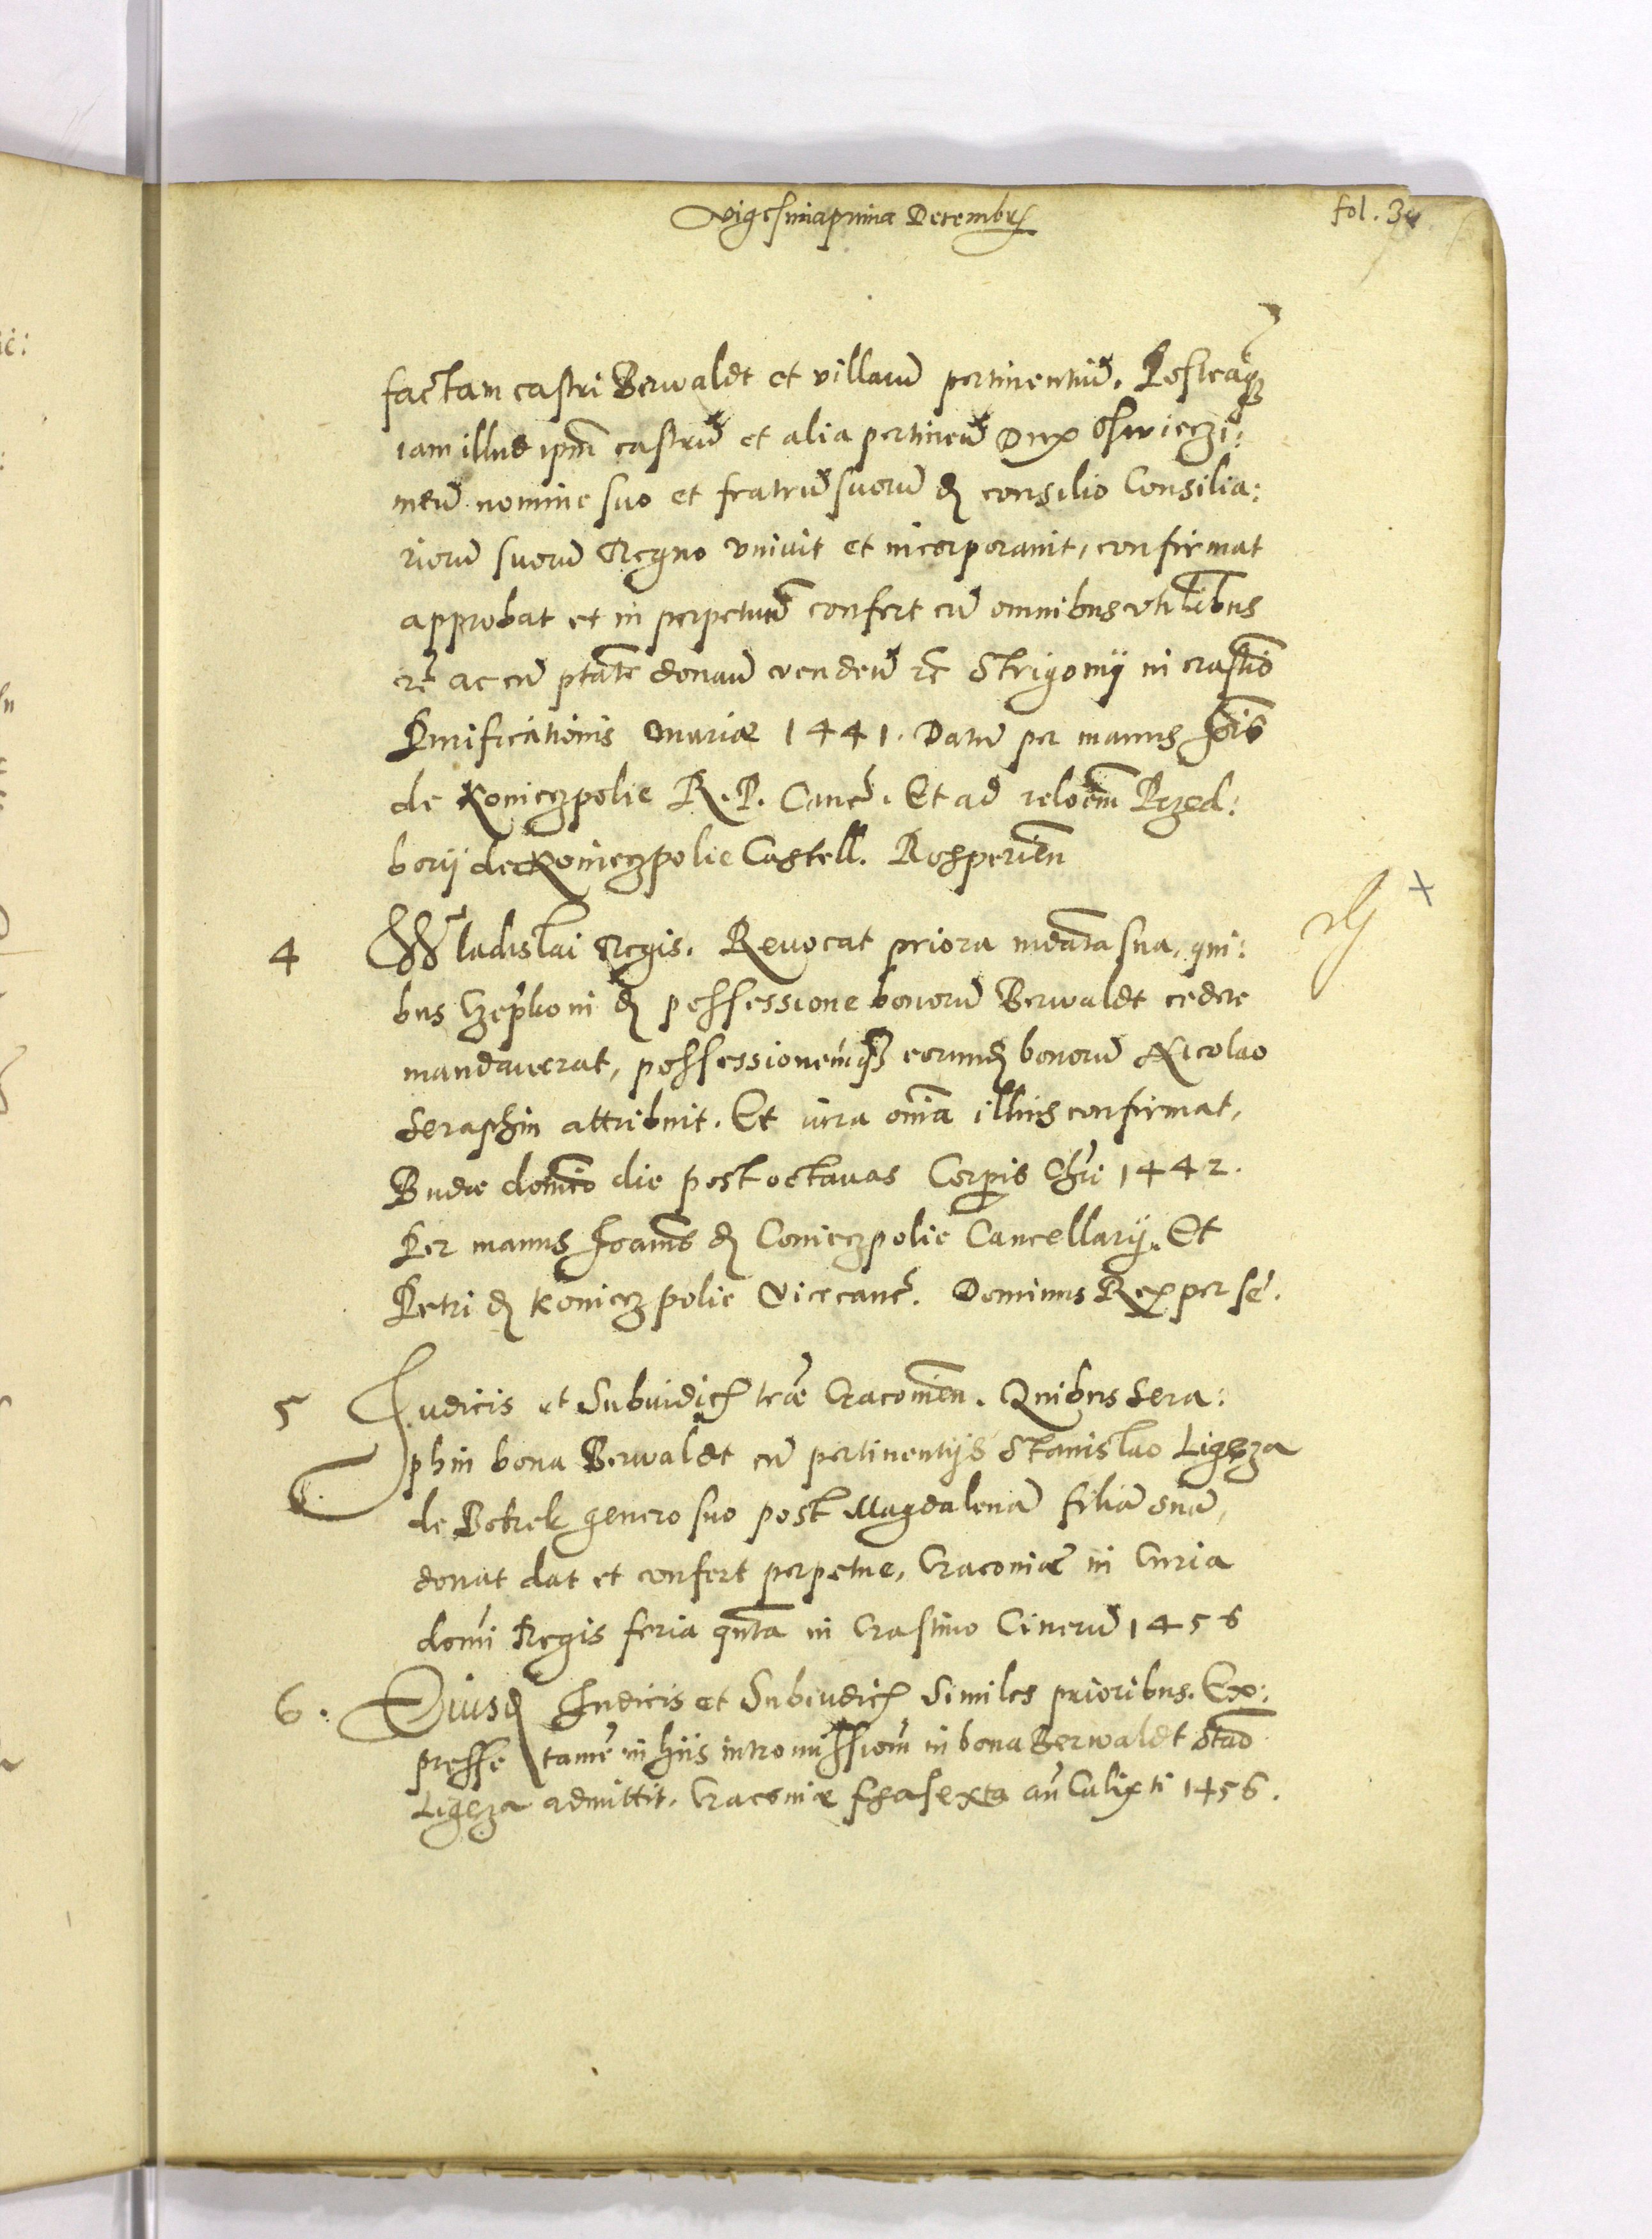 Vigesimaprima Decembris
fol. 34
factam castri Berwaldt et villarũ pertinentiũ. Posteaq3
iam illud ipm̃ castrũ et alia pertineñ Dux Oswieczi:
meñ nomine suo et fratrũ suorũ de consilio Consilia:
riorũ suorũ Regno vniuit et incorporauit, confirmat
approbat et in perpetuũ confert cũ omnibus vtilibus
etc̃ ac cũ ptãte donañ vendeñ etc̃ Strigonij in crastĩo
Purificationis Mariæ 1441. Datũ per manus Joĩs
de Konieczpolie R. P. Canc̃. Et ad relõem Przed:
borij de Konieczpolie Castell. Rosperieñ
4 Wladislai Regis. Reuocat priora mdãta sua, qui:
bus Czepkoni de possessione bonorũ Berwaldt cedere
mandauerat, possessionemq3 eorumd bonorũ Nicolao
Seraphin attribuit. Et iura om̃ia illius confirmat,
Budæ domĩco die post octauas Corpis Chri 1442.
Per manus Joañis de Conieczpolie Cancellarij. Et
Petri de Konieczpolie Vicecanc̃. Dominus Rex per se.
5 Judicis et Subiudicis træ Cracouieñ. Quibus Sera:
phin bona Berwaldt cũ pertinentijs Stanislao Ligęza
de Bobrek genero suo post Magdalenã filiã suã,
donat dat et confert perpetue, Cracouiæ in Curia
domi Regis feria qnta in Crastino Cinerũ 1456
6. Eiusd Judicis et Subiudicis Similes prioribus. Ex:
presse tamẽ in hiis intromissioñi in bona Berwaldt Stão
Ligęza admittit. Cracouiæ fria sexta añ Calixti 1456.